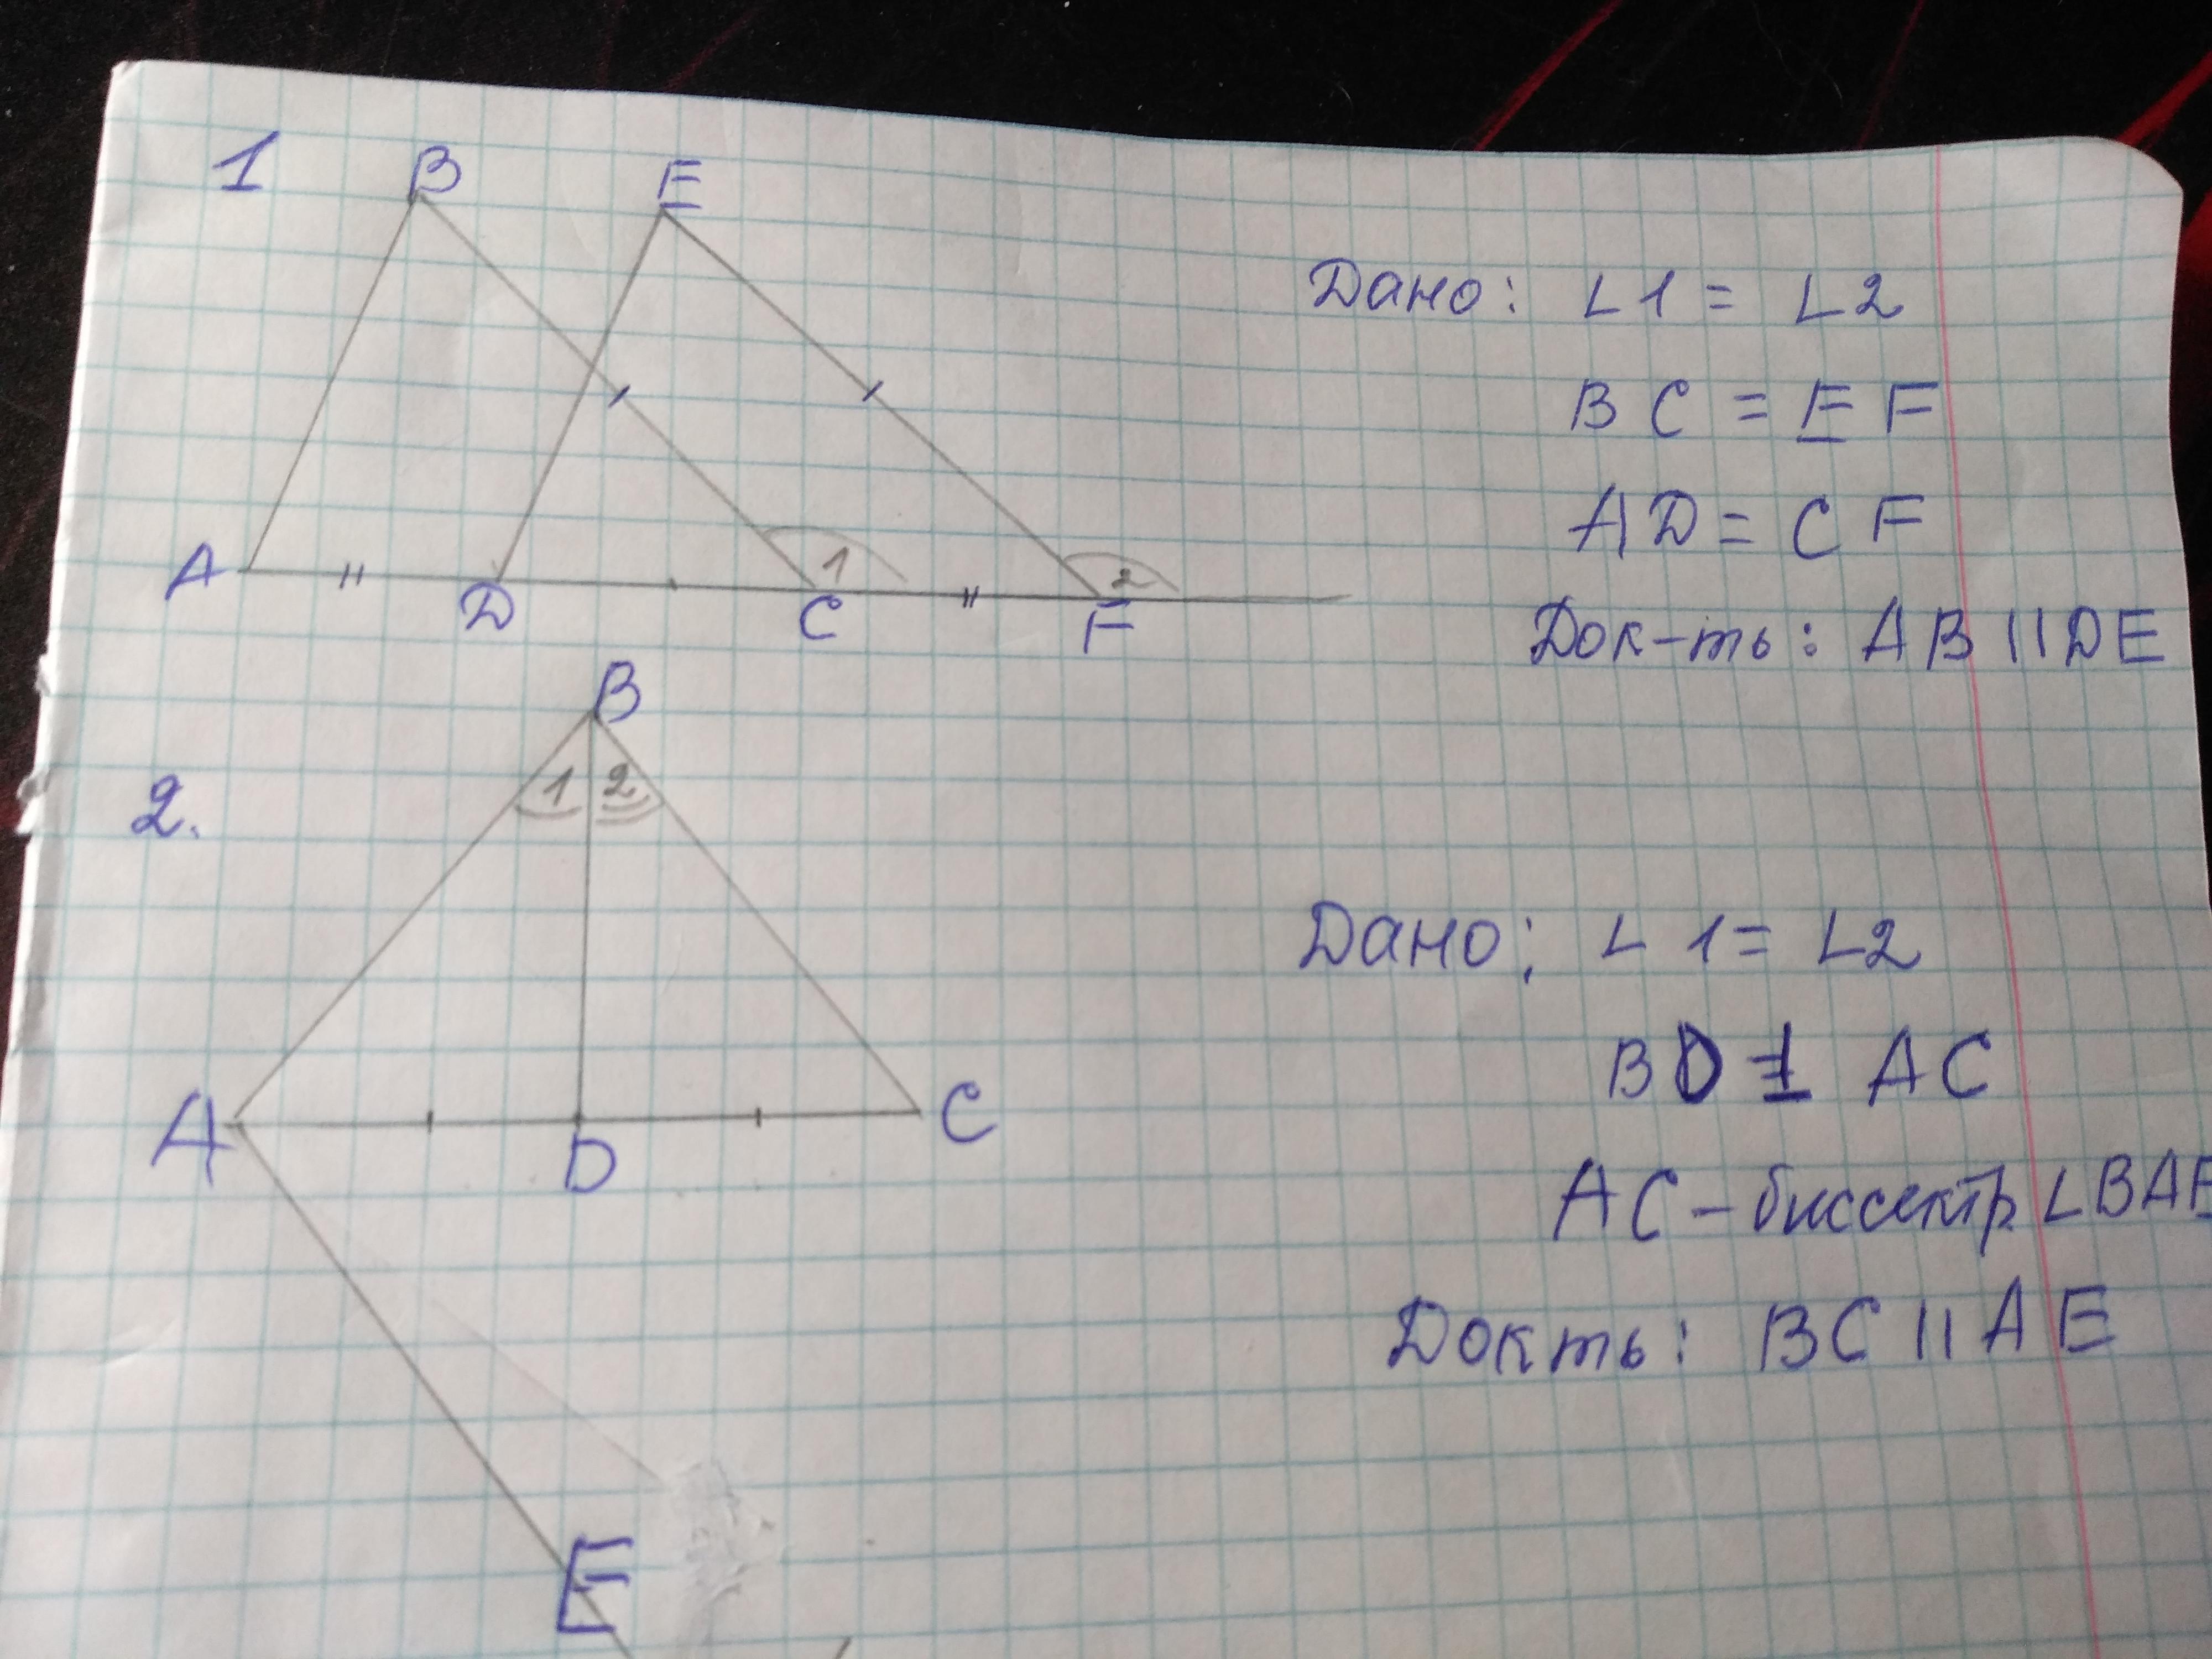 1
B E
A D C F
1 2
Дано: ∠1 = ∠2
BC = EF
AD = CF
Док-ть: AB || DE
2.
B
1 2
A D C
E
Дано: ∠1 = ∠2
BD ⊥ AC
AC – биссектр ∠BAE
Докть: BC || AE